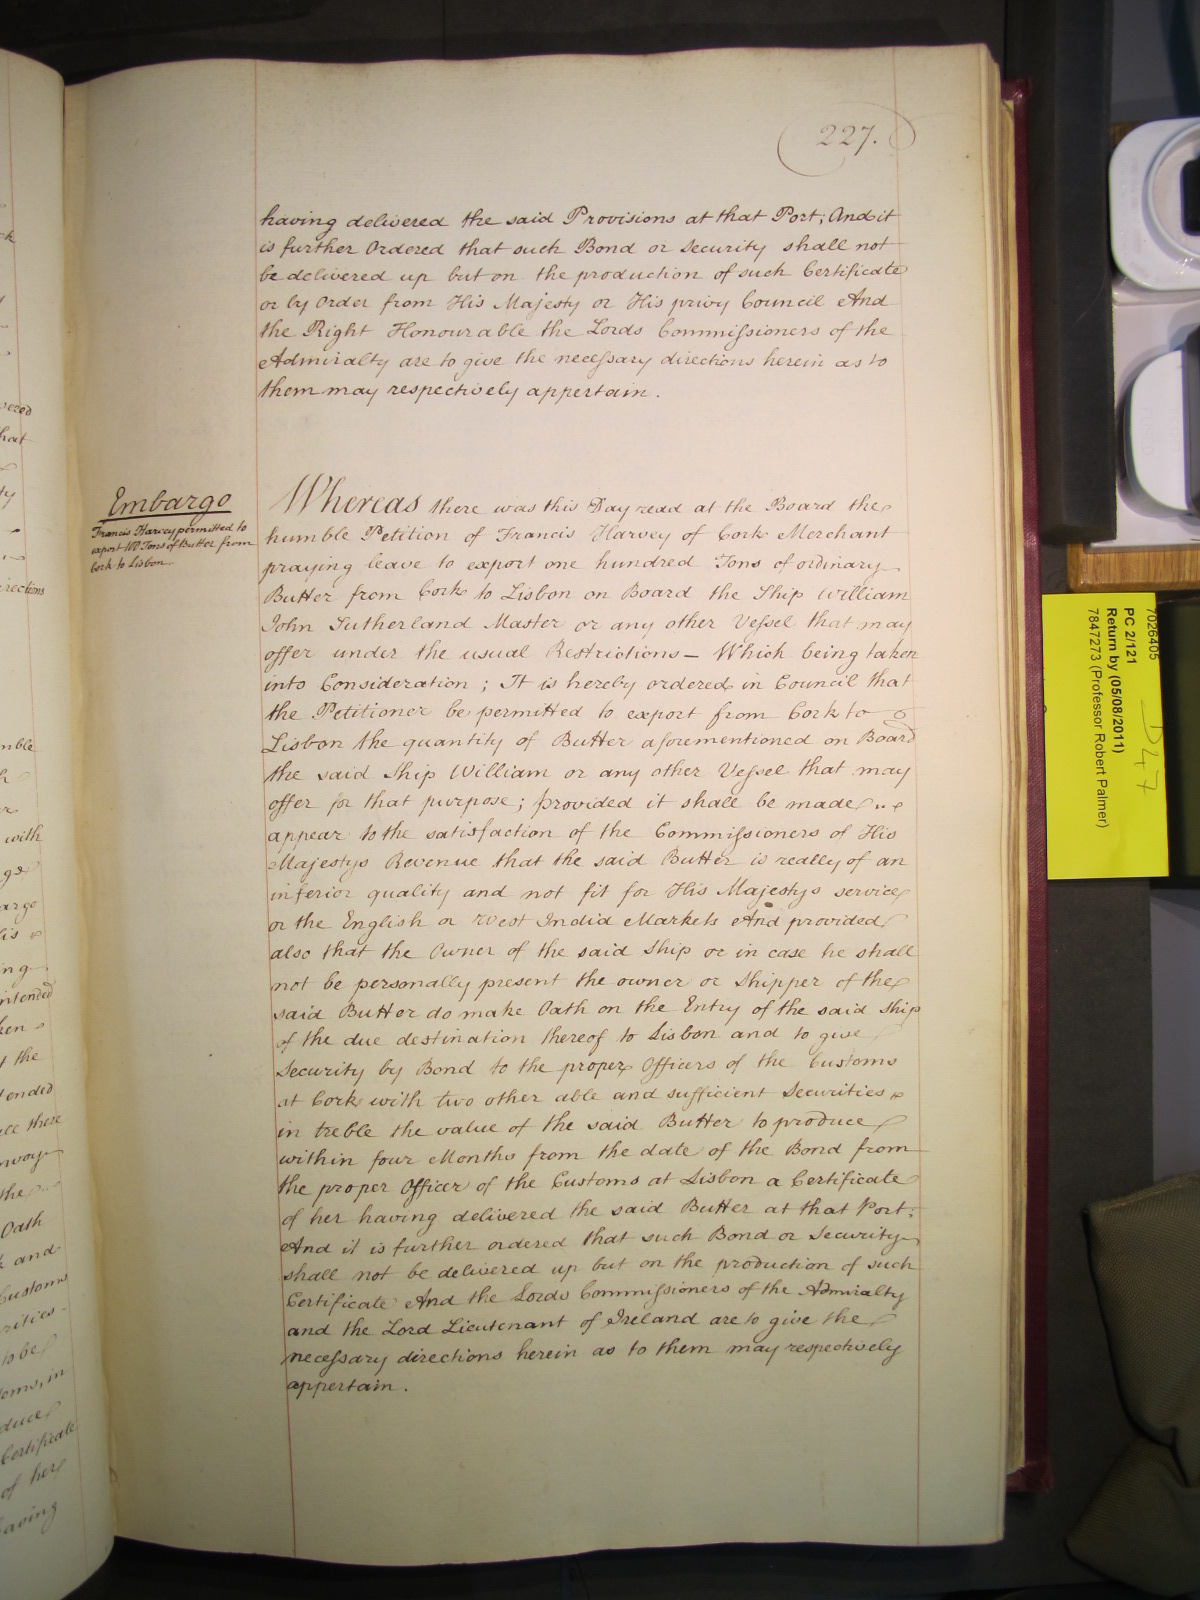 227.
having delivered the said Provisions at that Port; And it
is further Ordered that such Bond or Security shall not
be delivered up but on the production of such Certificate
or by Order from His Majesty or His privy Council And
the Right Honourable the Lords Commissioners of the
Admiralty are to give the necessary directions herein as to
them may respectively appertain.
Embargo
Francis Harvey permitted to
export 100 Tons of Butter from
Cork to Lisbon.
Whereas there was this Day read at the Board the
humble Petition of Francis Harvey of Cork Merchant
praying leave to export one hundred Tons of ordinary
Butter from Cork to Lisbon on Board the Ship William
John Sutherland Master or any other Vessel that may
offer under the usual Restrictions — Which being taken
into Consideration; It is hereby ordered in Council that
the Petitioner be permitted to export from Cork to
Lisbon the quantity of Butter aforementioned on Board
the said Ship William or any other Vessel that may
offer for that purpose; provided it shall be made
appear to the satisfaction of the Commissioners of His
Majestys Revenue that the said Butter is really of an
inferior quality and not fit for His Majestys service
or the English or West India Markets And provided
also that the Owner of the said Ship or in case he shall
not be personally present the owner or Shipper of the
said Butter do make Oath on the Entry of the said Ship
of the due destination thereof to Lisbon and to give
Security by Bond to the proper Officers of the Customs
at Cork with two other able and sufficient Securities
in treble the value of the said Butter to produce
within four Months from the date of the Bond from
the proper Officer of the Customs at Lisbon a Certificate
of her having delivered the said Butter at that Port;
And it is further ordered that such Bond or Security
shall not be delivered up but on the production of such
Certificate And the Lords Commissioners of the Admiralty
and the Lord Lieutenant of Ireland are to give the
necessary directions herein as to them may respectively
appertain.
7026405
PC 2/121
Return by (05/08/2011)
7847273 (Professor Robert Palmer)
D47